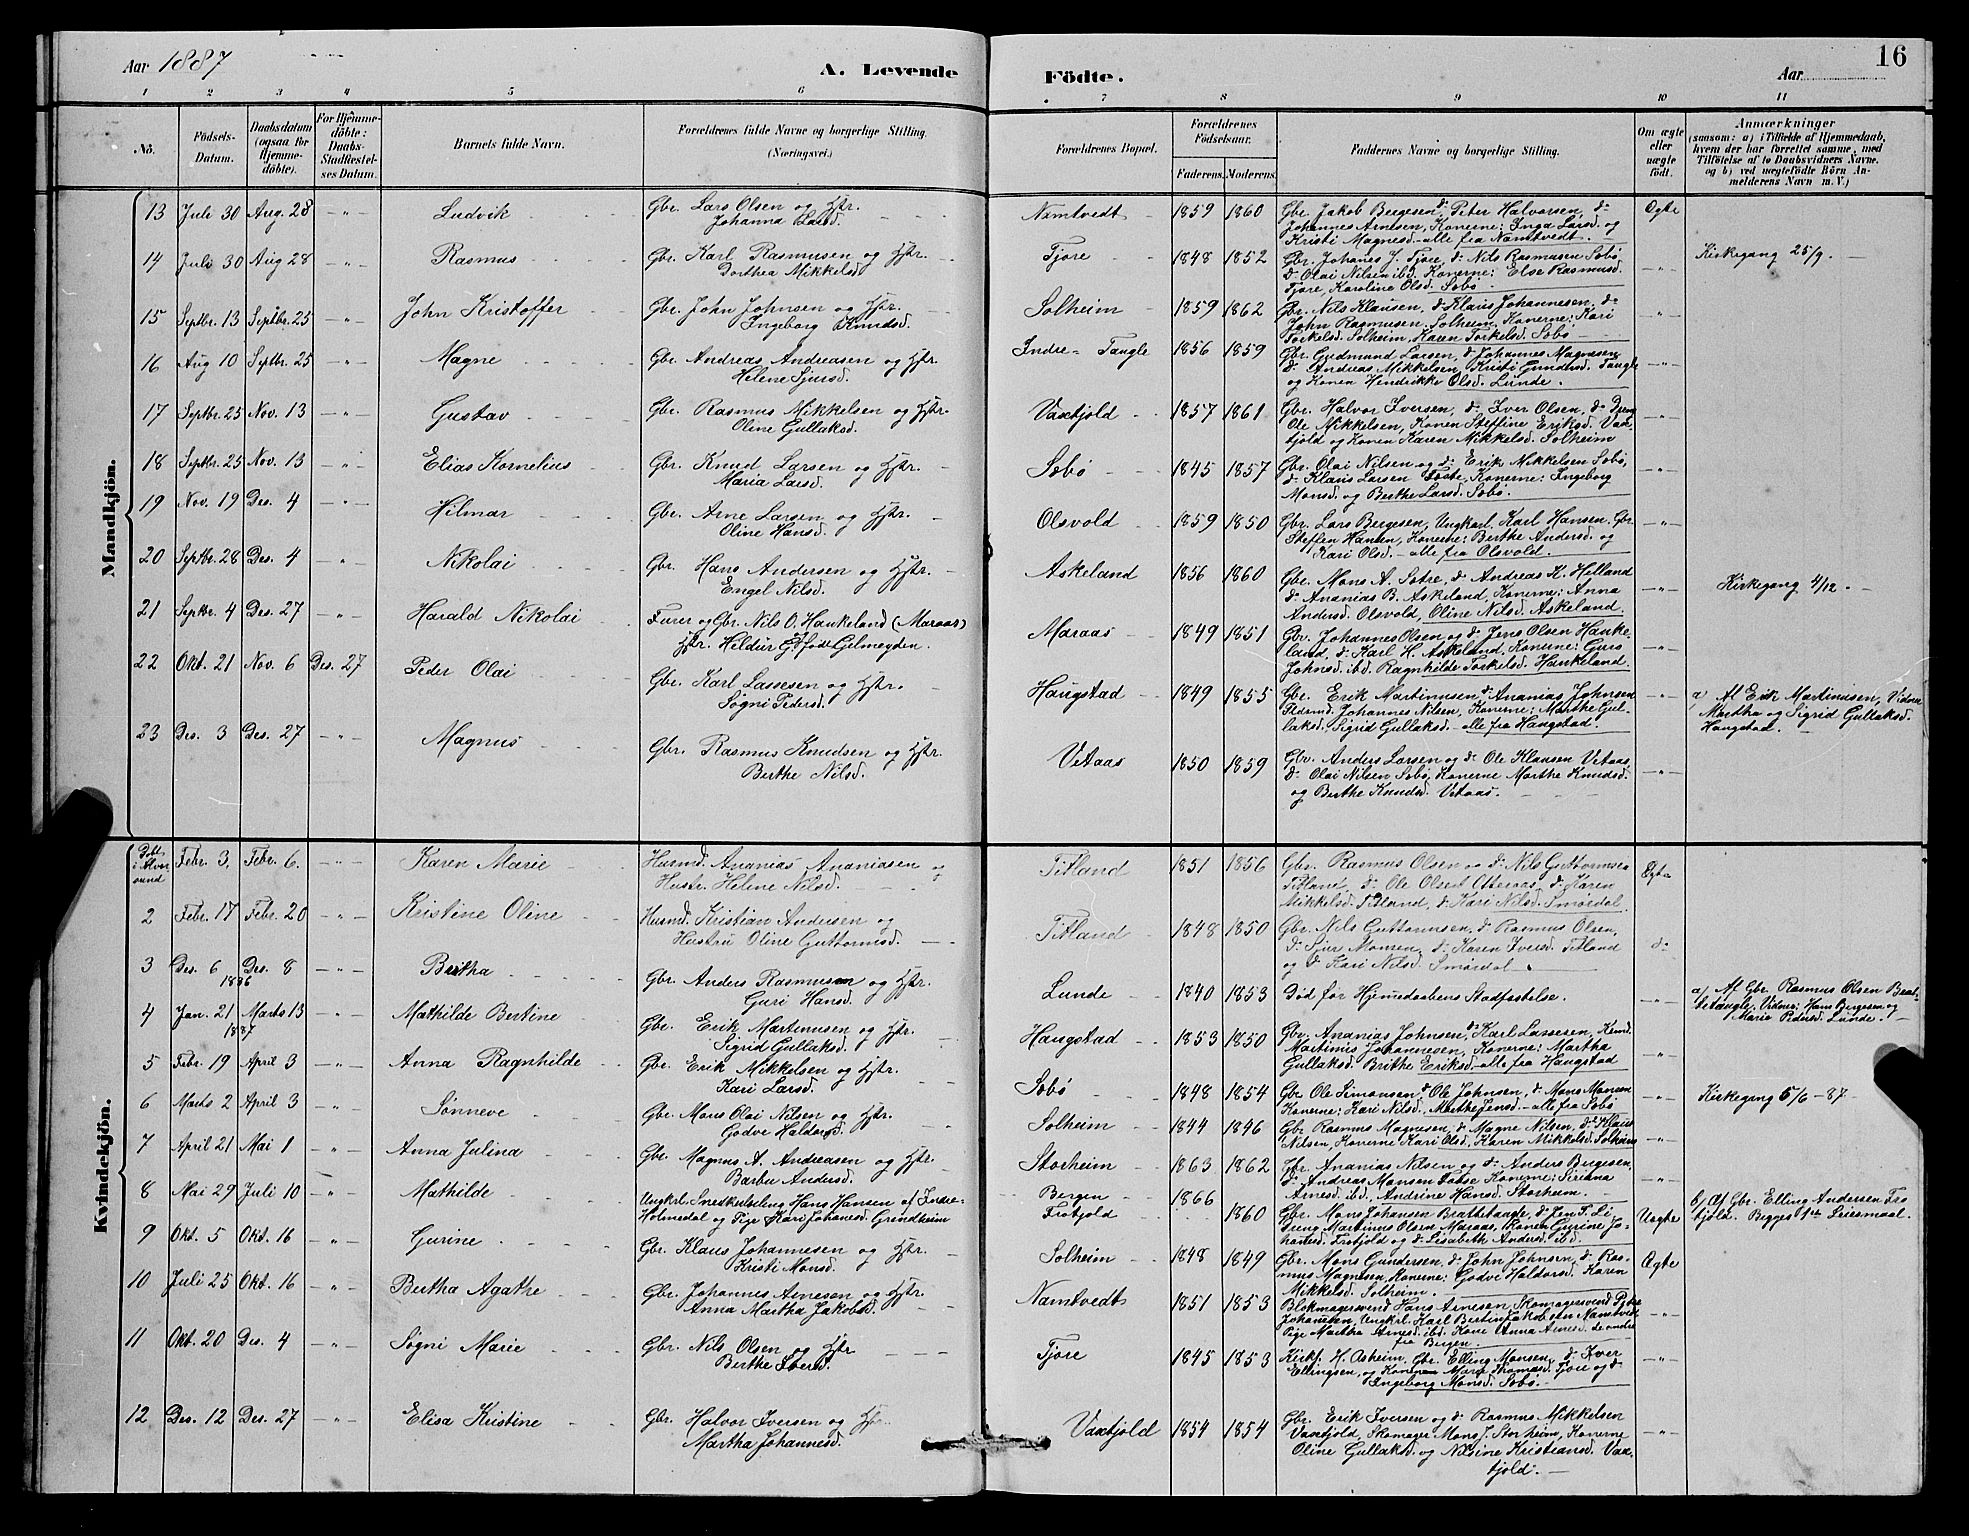 Aar 1887
A. Levende
Födte.
Aar
16
1 2 3 4 5 6 7 8 9 10 11
No.
Födsels-Datum.
Daabsdatum (ogsaa for Hjemmedöbte).
For Hjemmedöbte: Daabs-Stadfæstelses Datum.
Barnets fulde Navn.
Forældrenes fulde Navne og borgerlige Stilling. (Næringsvei.)
Forældrenes Bopæl.
Forældrenes Födselsaar.
Faderens. Moderens.
Faddernes Navne og borgerlige Stilling.
Om ægte eller uægte födt.
Anmærkninger
(saasom: a) i Tilfælde af Hjemmedaab,
hvem der har forrettet samme, med
Tilföielse af to Daabsvidners Navne.
og b) ved uægtefödte Börn An-
melderens Navn m. V.)
Mandkjön.
13 Juli 30 Aug. 28 Ludvik Gbr. Lars Olsen og Hstr.
Johanna Larsd.
Namtvedt 1859 1860 Gbr Jakob Bergesen, do Peter Halvorsen, do
Johannes Arnesen, Konerne: Inga Larsd. og
Kristi Magnesd. - alle fra Namtvedt.
Ægte
14 Juli 30 Aug 28 Rasmus Gbr. Karl Rasmusen og Hstr.
Dorthea Mikkelsd.
Tjore 1848 1852 Gbr. Johanes J. Tjore, do Nils Rasmusen Sobö
do Olai Nilsen ibd. Konerne: Else Rasmusd.
Tjore, Karoline Olsd. Sobö
Kirkegang 25/9.
15 Septbr. 13 Septbr. 25 John Kristoffer Gbr. John Johnsen og Hstr.
Ingeborg Knudsd.
Solheim 1859 1862 Gbr. Nils Klausen, do Klaus Johannesen, do
John Rasmusen Solheim, Konerne: Kari
Torkelsd. Solheim, Karen Torkelsd. Sobö
16 Aug 10 Septbr. 25 Magne Gbr. Andreas Andreasen og Hstr.
Helene Sjursd.
Indre-Tangle 1856 1859 Gbr. Gudmund Larsen, do Johannes Magnesen
do Andreas Mikkelsen, Kristi Gundhsd. Tangle
og Konen Hendrikke Olsd. Lunde.
17 Septbr. 25 Nov. 13 Gustav Gbr. Rasmus Mikkelsen og Hstr.
Oline Gullaksd.
Vaxtjold 1857 1861 Gbr. Halvor Iversen, do Iver Olsen, do Dreng
Ole Mikkelsen, Konen Steffine Eriksd. Vax-
tjold og Konen Karen Mikkelsd. Solheim
18 Septbr. 25 Nov. 13 Elias Kornelius Gbr. Knud Larsen og Hstr.
Maria Larsd.
Sobö 1845 1857 Gbr. Olai Nilsen og do Erik Mikkelsen Sobö,
do Klaus Larsen Toste, Konerne: Ingeborg
Monsd. og Berthe Larsd. Sobö.
19 Nov. 19 Des. 4 Hilmar Gbr. Arne Larsen og Hstr.
Oline Hansd.
Olsvold 1859 1850 Gbr. Lars Bergesen, Ungkarl Karl Hansen, Gbr.
Steffen Hansen, Konerne: Berthe Andersd. og
Kari Olsd. - alle fra Olsvold.
20 Septbr. 28 Des. 4 Nikolai Gbr. Hans Andersen og Hstr.
Engel Nilsd.
Askeland 1856 1860 Gbr. Mons A. Sotre, do Andreas K. Helland
do Ananias B. Askeland, Konerne: Anna
Andersd. Olsvold, Oline Nilsd. Askeland.
Kirkegang 4/12.
21 Septbr. 4 Des. 27 Harald Nikolai Furer og Gbr. Nils O. Haukeland (Maraas)
Hstr. Heldur G. födt Gelmeyden.
Maraas 1849 1851 Gbr. Johannes Olsen og do Jens Olsen Hauke-
land, do Karl H. Askeland, Konerne: Guro
Johnsd. ibd. Ragnhilde Torkelsd. Haukeland.
22 Okt. 21 Nov. 6 Des. 27 Peder Olai Gbr. Karl Lassesen og Hstr.
Sogni Pedersd.
Haugstad 1849 1855 Gbr. Erik Martinusen, do Ananias Johnsen
Johannes Nilsen, Konerne: Marthe Gul-
laksd. Sigrid Gullaksd. - alle fra Haugstad.
a) Af Erik Martinusen, Vidner
Martha og Sigrid Gullaksd.
Haugstad.
23 Des. 3 Des. 27 Magnus Gbr. Rasmus Knudsen og Hstr.
Berthe Nilsd.
Vetaas 1850 1859 Gbr. Anders Larsen og do Ole Klausen Vetaas,
do Olai Nilsen Sobö, Konerne Marthe Knudsd.
og Berthe Knudsd. Vetaas.
Kvindekjön.
Febr. 3. Febr. 6. Karen Marie Husmd. Ananias Ananiasen og
Hustr. Helene Nilsd.
Titland 1851 1856 Gbr. Rasmus Olsen og do Nils Guttormsen
Titland, do Ole Olsen Otteraas, do Karen
Mikkelsd. Titland, do Kari Nilsd. Smördal.
Ægte
2 Febr. 17 Febr. 20 Kristine Oline Husmd. Kristian Andersen og
Hustru Oline Guttormsd.
Titland 1848 1850 Gbr. Nils Guttormsen, do Rasmus Olsen,
do Sjur Monsen, do Karen Iversd. Titland
og do Kari Nilsd. Smördal
do
3 Des. 6 1886 Des. 8 Bertha Gbr. Anders Rasmusen og Hstr.
Guri Hansd.
Lunde 1840 1853 Död för Hjemmedaabens Stadfæstelse.
a) Af Gbr. Rasmus Olsen Beat-
tetangle, Vidner: Hans Bergesen og
Marie Pedersd. Lunde.
4 Jan. 21 1887 Marts 13 Mathilde Bertine Gbr. Erik Martinusen og Hstr.
Sigrid Gullaksd.
Haugstad 1853 1850 Gbr. Ananias Johnsen, do Karl Lassesen,
Martinus Johannesen, Konerne: Martha
Gullaksd. Brithe Eriksd. - alle fra Haugstad
5 Febr. 19 April 3 Anna Ragnhilde Gbr. Erik Mikkelsen og Hstr.
Kari Larsd.
Sobö 1848 1854 Gbr Ole Simonsen, do Ole Johnsen, do Mons Monsen
Konerne: Kari Nilsd. Marthe Jensd. - alle fra Sobö
Kirkegang 5/6 - 87
6 Marts 2 April 3 Sönneve Gbr. Mons Olai Nilsen og Hstr.
Godve Haldorsd.
Solheim 1844 1846 Gbr Rasmus Magnesen, do Magne Nilsen, do Klaus
Nilsen, Konerne Kari Olsd. Karen Mikkelsd. Solheim
7 April 21 Mai 1 Anna Julina Gbr. Magnus A. Andreasen og Hstr.
Barbu Andersd.
Storheim 1863 1862 Gbr. Ananias Nilsen og do Anders Bergesen,
do Andreas Monsen Fosse Konerne: Siriana
Arnesd. ibd. Andrine Hansd. Storheim.
8 Mai 29 Juli 10 Mathilde Ungkrl. Snedkerlærling Hans Hansen af Indre-
Holmedal og Pige Kari Johanesd. Grindheim
Bergen 1866
Frotjold 1860 Gbr. Mons Johansen Beattetangle, do Jens T. Li
Dreng Martinus Olsen Maraas, Konen Gurine Jo-
hanesd. Frotjold og do Lisabeth Andersd. ibd.
Uægte
b) Af Gbr. Elling Andersen Fro
tjold. Begges 1ste Leiermaal.
9 Okt. 5 Okt. 16 Gurine Gbr. Klaus Johannesen og Hstr.
Kristi Monsd.
Solheim 1848 1849 Gbr. Mons Gundersen, do John Johnsen, do Ras-
mus Magnesen, Konerne: Godve Haldorsd. Karen
Mikkelsd. Solheim.
Ægte
10 Juli 25 Okt. 16 Bertha Agathe Gbr. Johannes Arnesen og Hstr.
Anna Martha Jakobsd.
Namtvedt 1851 1853 Blokmagersvend Hans Arnesen, Skomagersvend
Johannesen, Ungkrl. Karl Bertin Jakobsen Namtvedt
Pige Martha Arnesd. ibd. Kone Anna Arnesd. de andre
fra Bergen.
11 Okt. 20 Des. 4 Sogni Marie Gbr. Nils Olsen og Hstr
Berthe Iversd.
Tjore 1845 1853 Kirks. H. Asheim, Gbr. Elling Monsen, do Iver
Ellingsen, og Konerne Mari Thomasd. Tjore og do
Ingeborg Monsd. Sobö.
12 Des. 12 Des. 27 Elisa Kristine Gbr. Halvor Iversen og Hstr.
Martha Johannesd.
Vaxtjold 1854 1854 Gbr. Erik Iversen og do Rasmus Mikkelsen
Vaxtjold, Skomager Mons J. Storheim, Konerne
Oline Gullaksd. og Nilsine Kristiansd. Vax-
tjold.